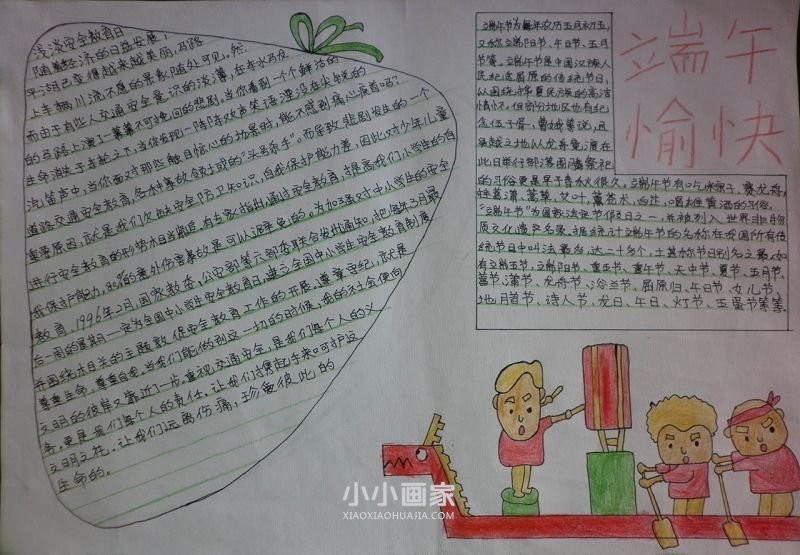 浅谈安全教育日
随着经济的日益发展，马路
平湖已变得越来越美丽，马路
上车辆川流不息的景象随处可见。然
而由于有些人交通安全意识的淡薄，在车水马龙
的马路上演了一幕幕不可挽回的悲剧。当你看到一个鲜活的
生命消失于车轮之下，当你发现一阵阵欢声笑语湮没在尖锐的
汽笛声中，当你面对那些触目惊心的场景时，能不感到痛心疾首吗？
道路交通安全教育，各种事故领域的“头号杀手”。而导致悲剧发生的一个
重要原因，就是我们欠缺安全防卫知识，自我保护能力差，因此对少年儿童
进行安全教育的形势相当
我保护能力，80%的意外伤害事故是可以避免的。为加强对中小学生的安全
教育，1996年2月，国家教委、公安部等六部委联合发出通知，把每年3月最
后一周的星期一定为全国中小学生安全教育日，建立全国中小学生安全教育制度，
并围绕相关的主题敦促安全教育工作的开展。遵章守纪，就是
尊重生命，尊重自我，当我们能做到这一切的时候，他的社会便向
文明的彼岸又靠近一步，重视交通安全，是我们每个人的义
务，更是我们每个人的责任。让我们携起手来呵护这
文明之花，让我们远离伤痛，珍爱彼此的
生命的。
端午
愉快
端午节为每年农历五月初五，
又称端阳节、午日节、五月
节等。端午节是中国汉族人
民纪念屈原的传统节日，
以围绕
情怀。但部分地区也有纪
念伍子胥、曹娥等说，且
吴越之地以龙舟竞渡在
此日举行部落图腾祭祀
的习俗更是早于春秋很久。端午节有吃粽子，赛龙舟，
挂菖蒲、蒿草、艾叶，薰苍术、白芷，喝雄黄酒的习俗。
“端午节”为国家法定节假日之一，并被列入世界非物
质文化遗产名录。据统计端午节的名称在我国所有传
统节日中叫法最多，达二十多个，
有端五节、端阳节、重五节、重午节、天中节、夏节、五月节、
菖节、蒲节、龙舟节、浴兰节、屈原日、午日节、女儿节、
地月首节、诗人节、龙日、午日、灯节、五蛋节等等。
小小画家
XIAOXIAOHUAJIA.COM